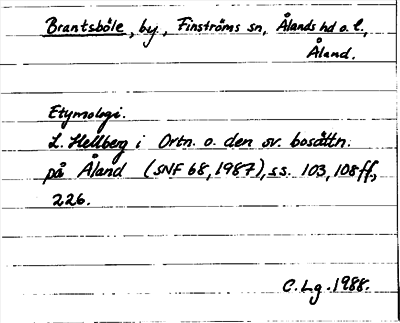 Brantsböle, by, Finströms sn, Ålands hd o. l.,
Åland.
Etymologi.
L. Hellberg i Ortn. o. den sv. bosättn.
på Åland (SNF 68, 1987), ss. 103, 108 ff.,
226.
C. Lg. 1988.